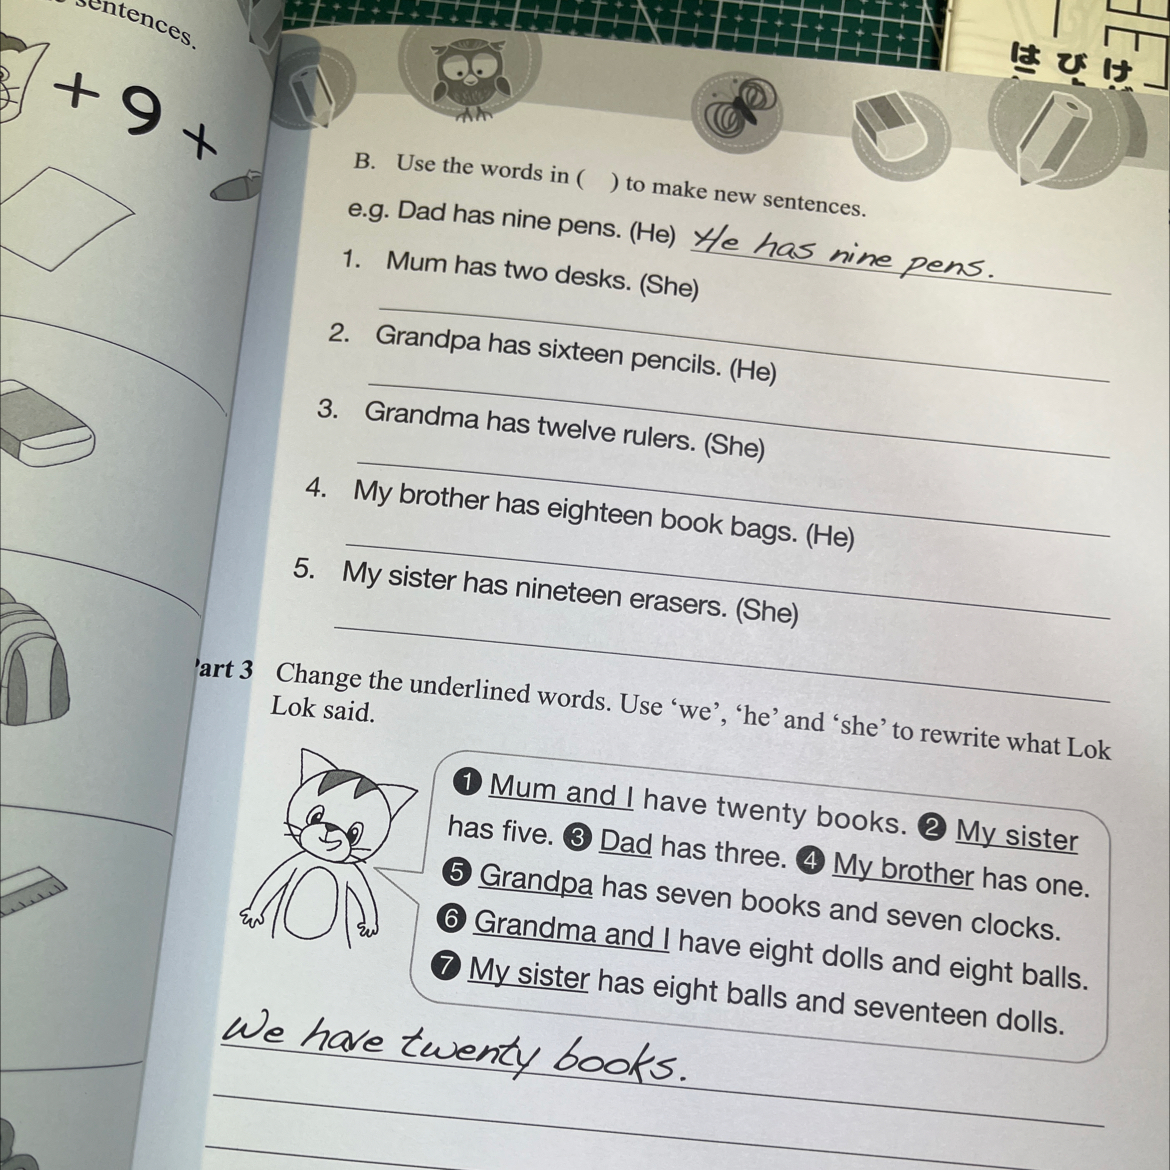 sentences.
+ 9 +
は び け
B. Use the words in ( ) to make new sentences.
e.g. Dad has nine pens. (He) He has nine pens.
1. Mum has two desks. (She)
2. Grandpa has sixteen pencils. (He)
3. Grandma has twelve rulers. (She)
4. My brother has eighteen book bags. (He)
5. My sister has nineteen erasers. (She)
art 3 Change the underlined words. Use ‘we’, ‘he’ and ‘she’ to rewrite what Lok
Lok said.
1 Mum and I have twenty books. 2 My sister
has five. 3 Dad has three. 4 My brother has one.
5 Grandpa has seven books and seven clocks.
6 Grandma and I have eight dolls and eight balls.
7 My sister has eight balls and seventeen dolls.
We have twenty books.